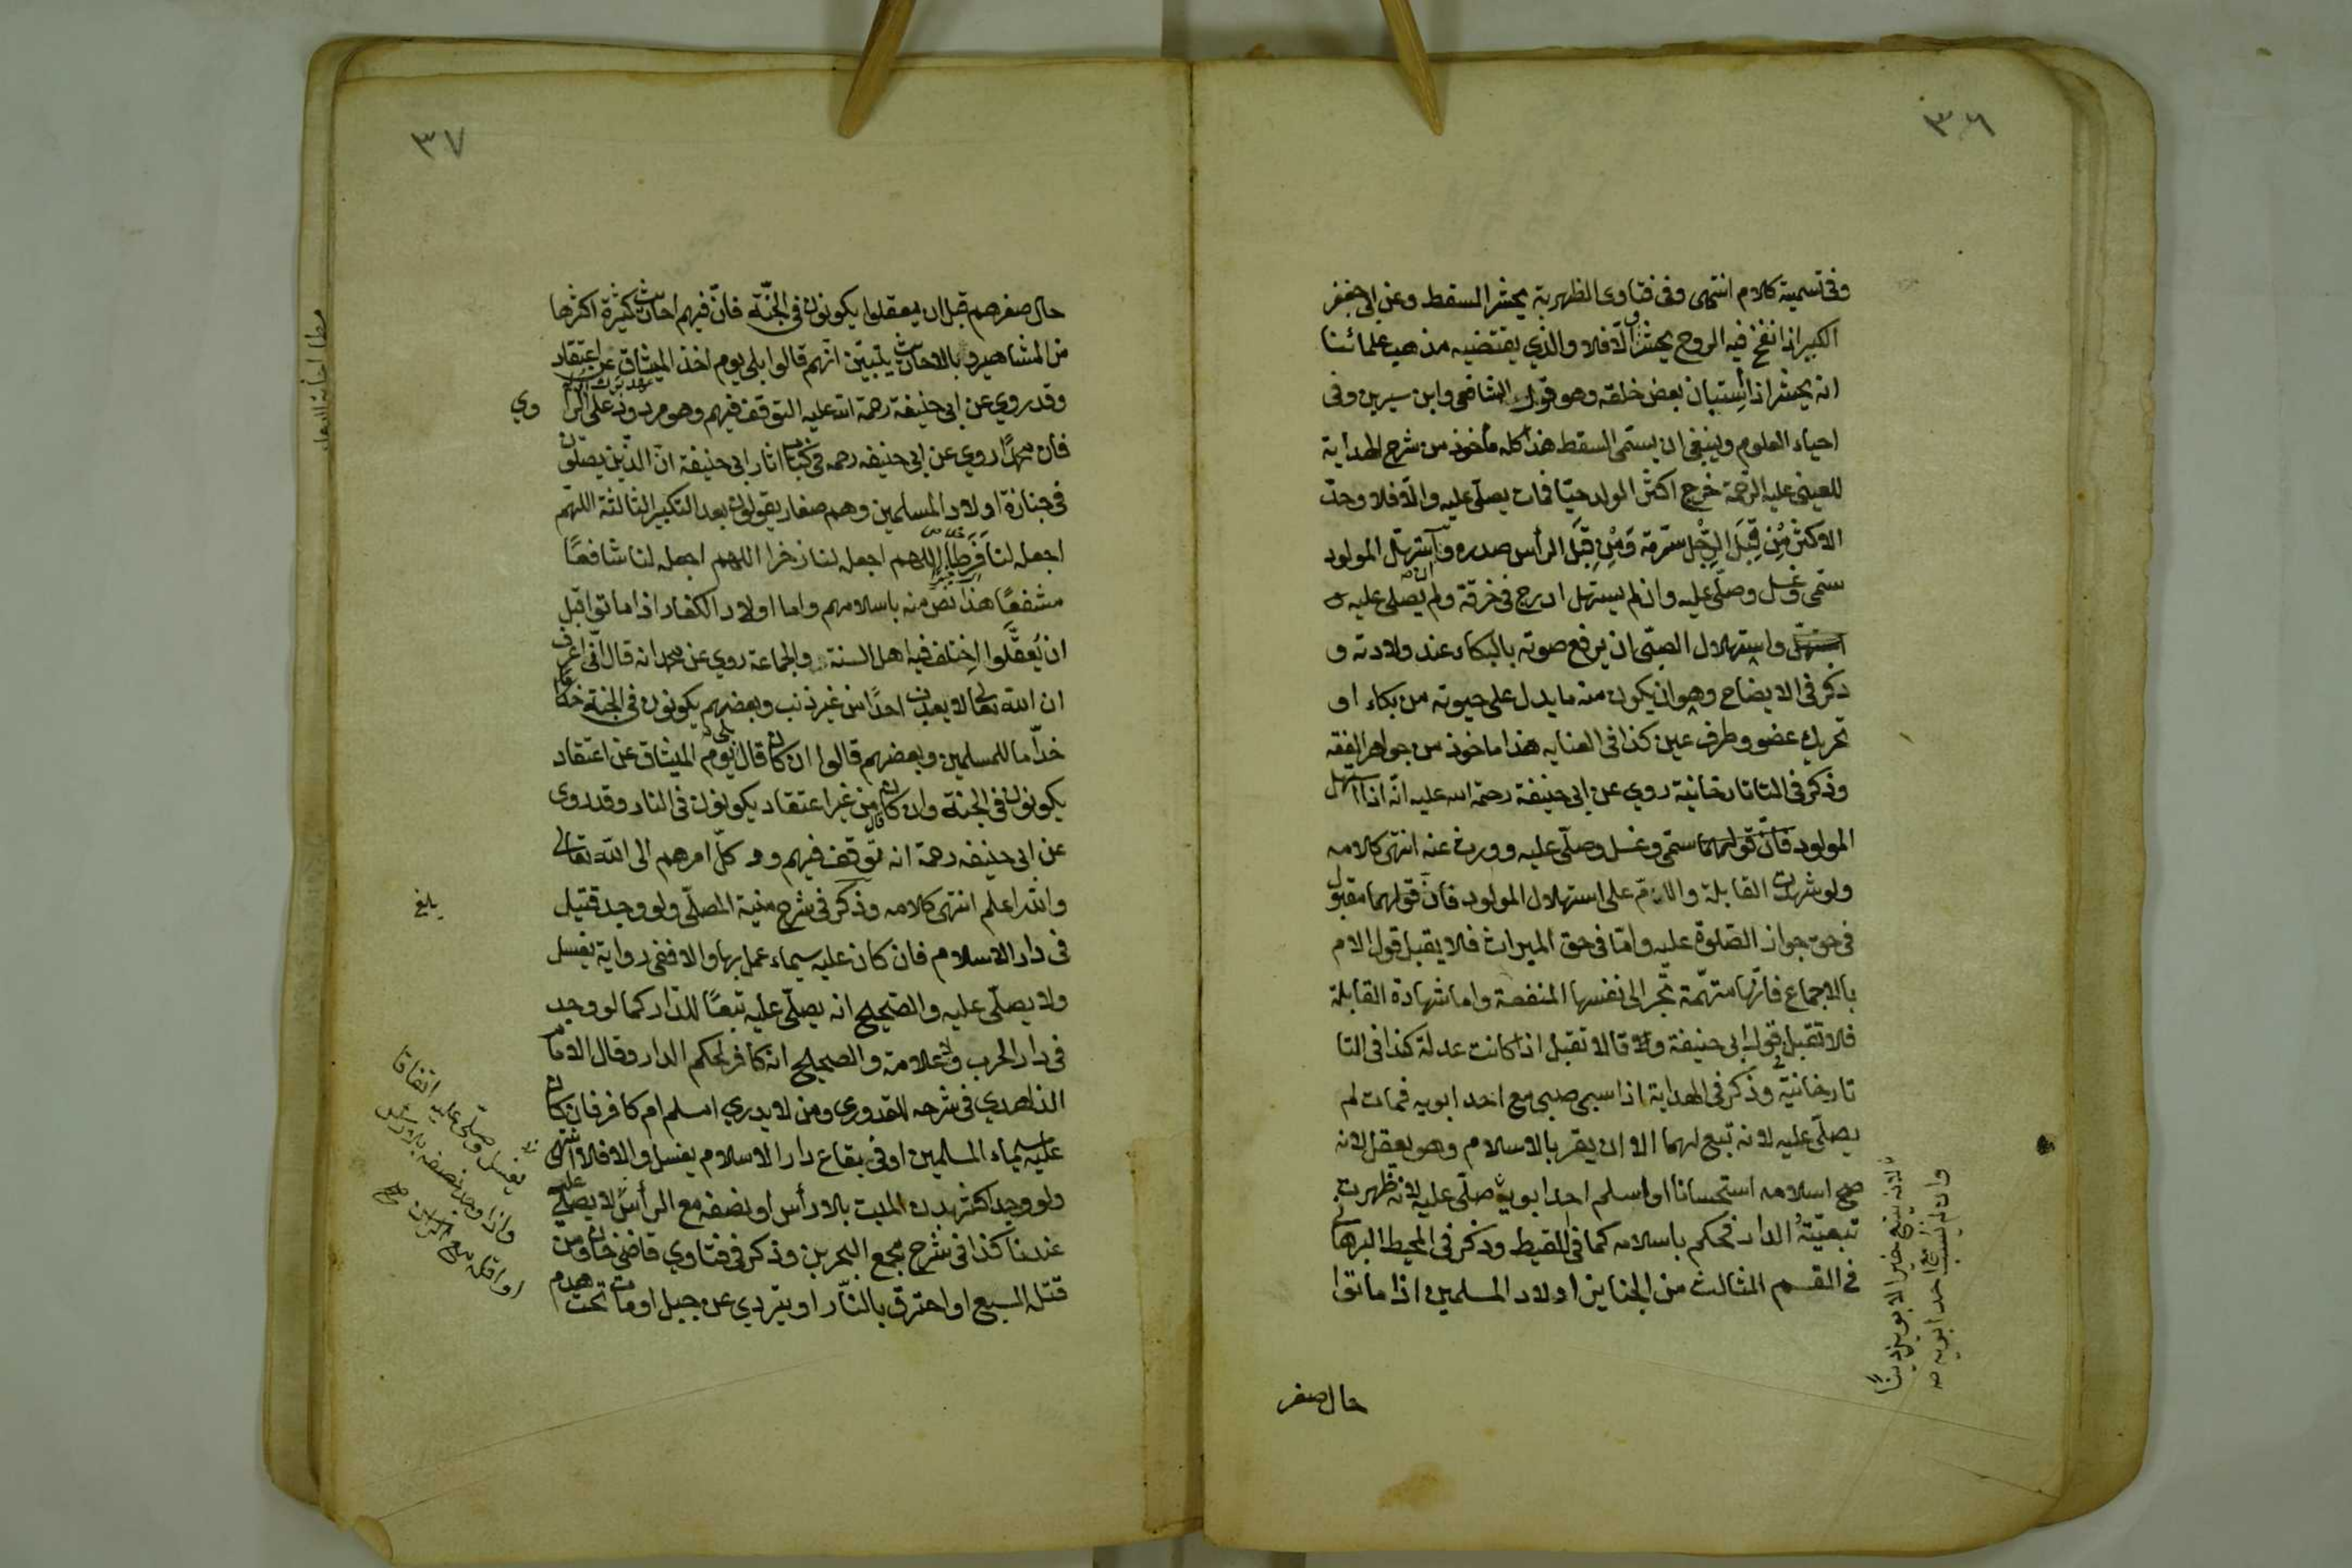 ٣٦
وفى تسمية كلام انتهى وفى فتاوى الظهرية يحشر السقط وعن ابى جعفر
الكبير اذا نفخ فيه الروح يحشر والّا فلا والذي يقتضيه مذهب علمائنا
انه يحشر اذا استبان بعض خلقه وهو قول الشافعى وابن سيرين وفى
احياء العلوم وينبغى ان يسمّى السقط هذا كله مأخوذ من شرح الهداية
للعينى عليه الرحمة خرج اكثر الولد حيّا فمات يصلّى عليه والّا فلا وحدّ
الاكثر مِنْ قِبَلَ الرِّجْل سرّته وَمِنْ قِبَلَ الرأس صدره وان استهلّ المولود
سمّى وغسل وصلّى عليه وان لم يستهل ادرج فى خرقة ولم يصلى عليه
واستهلال الصبّى ان يرفع صوته بالبكاء عند ولادته و
ذكر فى الايضاح وهو ان يكون منه ما يدل على حيوته من بكاء او
تحريك عضو وطرف عين كذا فى العنايه هذا ماخوذ من جواهر الفقه
وذكر فى التاتارخانية روي عن ابى حنيفة رحمة الله عليه انّه اذا استهل
المولود فانّ قولهما سمّى وغسل وصلّى عليه وورث عنه انتهى كلامه
ولو شهدت القابلة والامّ على استهلال المولود فانّ قولهما مقبول
فى حق جواز الصّلوة عليه وامّا فى حق الميراث فلا يقبل قول الام
بالاجماع فانّها متهّمة تجّر الى نفسها المنفعة واما شهادة القابلة
فلا تقبل قول ابى حنيفة وقالا تقبل اذا كانت عدلة كذا فى التا
تارخانيّة وذكر فى الهداية اذا سبى صبى مع احد ابويه فمات لم
يصلّى عليه لانه تبع لهما الا ان يقر بالاسلام وهو يعقل لانه
صح اسلامه استحسانا او اسلم احد ابويه صلّى عليه لانه ظهرت
تبعيّتُه الدار فحكم باسلامه كما فى اللقيط وذكر فى المحيط البرهانى
فى القسم الثالث من الجنايز اولاد المسلمين اذا ماتوا
لانه يتبع خير الابوين دينًا
وان لم يسب مع احد ابويه صح
حال صغر
٣٧
حال صغرهم قبل ان يعقلوا يكونون فى الجنّة فانّ فيهم احاديث كثيرة اكثرها
من المشاهير وبالاحاديث يتبيّن انّهم قالوا بلى يوم اخذ الميثاق عن اعتقاد
وقد روي عن ابى حنيفة رحمة الله عليه التوقف فيهم وهو مردود على الراوي
فان محمدًا روي عن ابى حنيفه رحمه فى كتاب اثار ابى حنيفة انّ الذّين يصلّون
فى جنازة اولاد المسلمين وهم صغار يقولون بعد التكبير الثالثة اللهّم
اجعله لنا فَرَطًا اللهم اجعله لنا ذخرا اللهم اجعله لنا شافعًا
مشفعًا هذا نصّ منه باسلامهم واما اولاد الكفار اذا ماتوا قبل
ان يَعْقِلوا اختلف فيه اهل السنة والجماعة روي عن محمد انه قال انّى اعرف
ان الله تعالى لا يعذب احدًا من غير ذنب وبعضهم يكونون فى الجنة
خدّاما للمسلمين وبعضهم قالوا ان كان قال بلى يوم الميثاق عن اعتقاد
يكونون فى الجنة وان كان قال من غير اعتقاد يكونون فى النار وقد روى
عن ابى حنيفه رحمة انه توقف فيهم ووكلّ امرهم الى الله تعالى
والله اعلم انتهى كلامه وذكر فى شرح منية المصلّى ولو وجد قتيل
بلغ
فى دار الاسلام فان كان عليه سيماء عمل بها والا ففى رواية يغسل
ولا يصلّى عليه والصّحيح انه يصلّى عليه تبعًا للدّار كما لو وجد
فى دار الحرب ولا علامة والصحيح انه كافر لحكم الدار وقال الامام
الزاهدي فى شرحه للقدوري ومن لا يدري امسلم ام كافر فان كان
عليه سيماء المسلمين او فى بقاع دار الاسلام يغسل والا فلا انتهى
ولو وجد اكثر بدن الميت بلا رأس او نصفه مع الرأس لا يصلّى عليه
عندنا كذا فى شرح مجمع البحرين وذكر فى فتاوي قاضى خان ومن
قتله السبع او احترق بالنّار او يتردي عن جبل او مات تحت هدم
يغسل وصلّى عليه اتفاقا
واذا وجد نصفه بلا رأس
او اقله مع الرأس